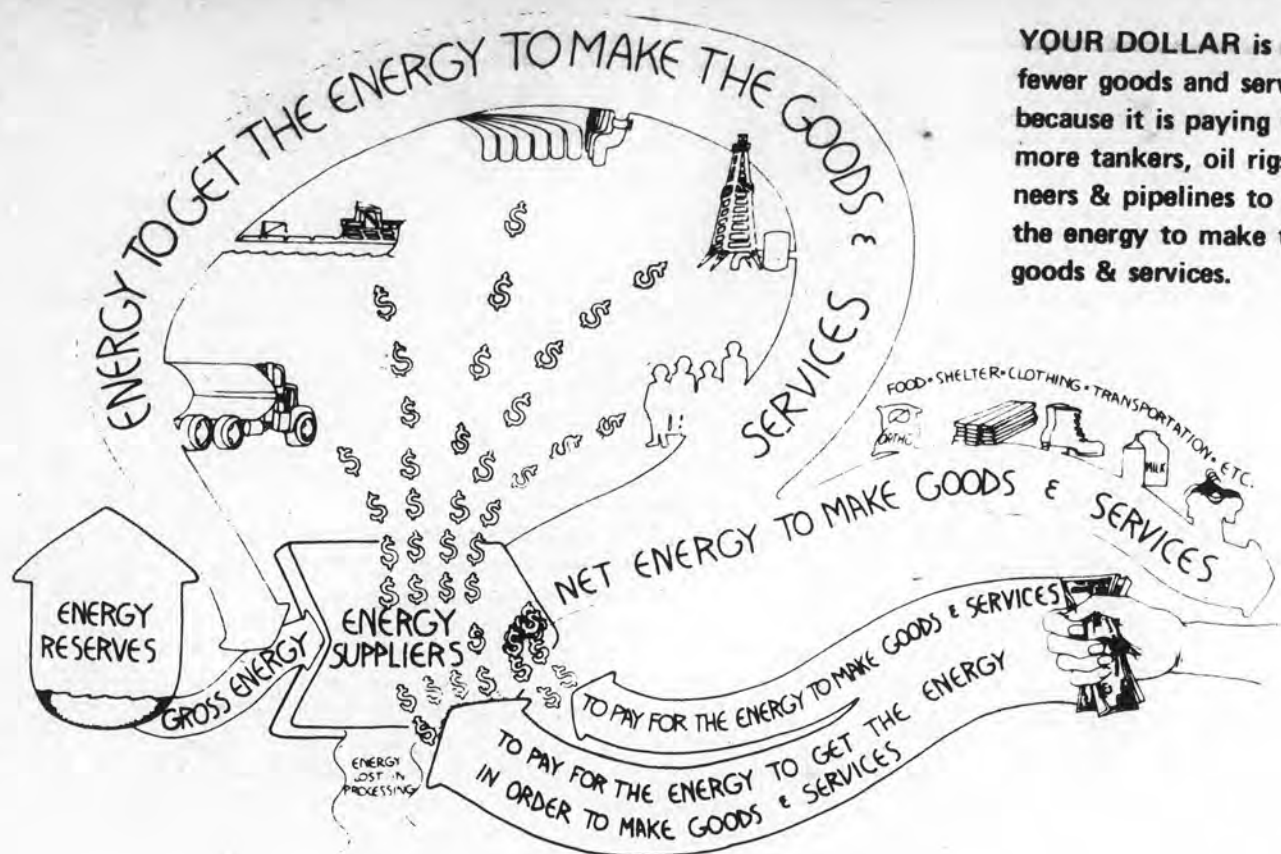 YOUR DOLLAR is
fewer goods and serv
because it is paying
more tankers, oil rig
neers & pipelines to
the energy to make t
goods & services.
ENERGY TO GET THE ENERGY TO MAKE THE GOODS & SERVICES
FOOD • SHELTER • CLOTHING • TRANSPORTATION • ETC.
ORTHO
MILK
NET ENERGY TO MAKE GOODS & SERVICES
ENERGY
RESERVES
GROSS ENERGY
ENERGY
SUPPLIERS
ENERGY
LOST IN
PROCESSING
TO PAY FOR THE ENERGY TO MAKE GOODS & SERVICES
TO PAY FOR THE ENERGY TO GET THE ENERGY
IN ORDER TO MAKE GOODS & SERVICES